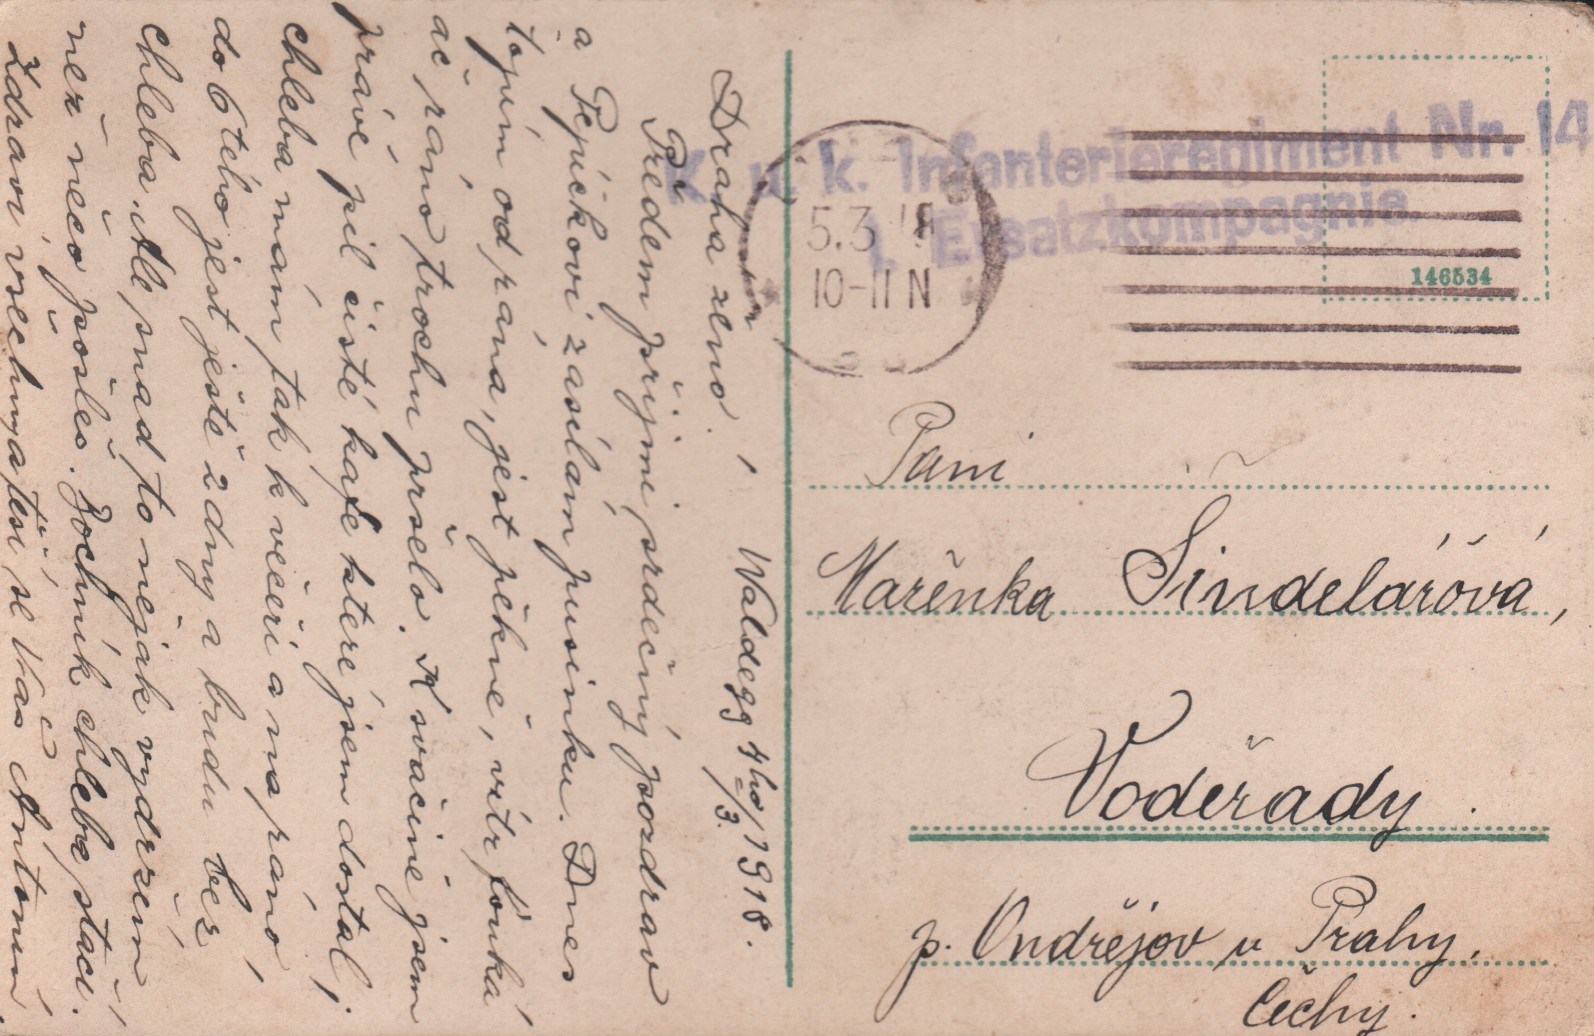 Waldegg 4ho/3. 1918.
Drahá ženo.
Předem přijmi srdečný pozdrav
a Pepíčkovi zasílám pusinku. Dnes
topím od rána, jest pěkně, vítr fouká
ač ráno trochu pršelo. K svačině jsem
právě pil čisté kafe které jsem dostal,
chleba mám tak k večeři a na ráno,
do 6 tého jest ještě 2 dny a budu bez
chleba. Ale snad to nějak vydržím
než něco pošleš. Bochník chleba stačí.
Zdraví všechny a těší se Váš Antonín.
K. u. k. Infanterieregiment Nr. 14
1. Ersatzkompagnie
5.3 18
10-11 N
146534
Paní
Mařenka Šindelářová,
Voděrady.
p. Ondřejov u Prahy,
Čechy.